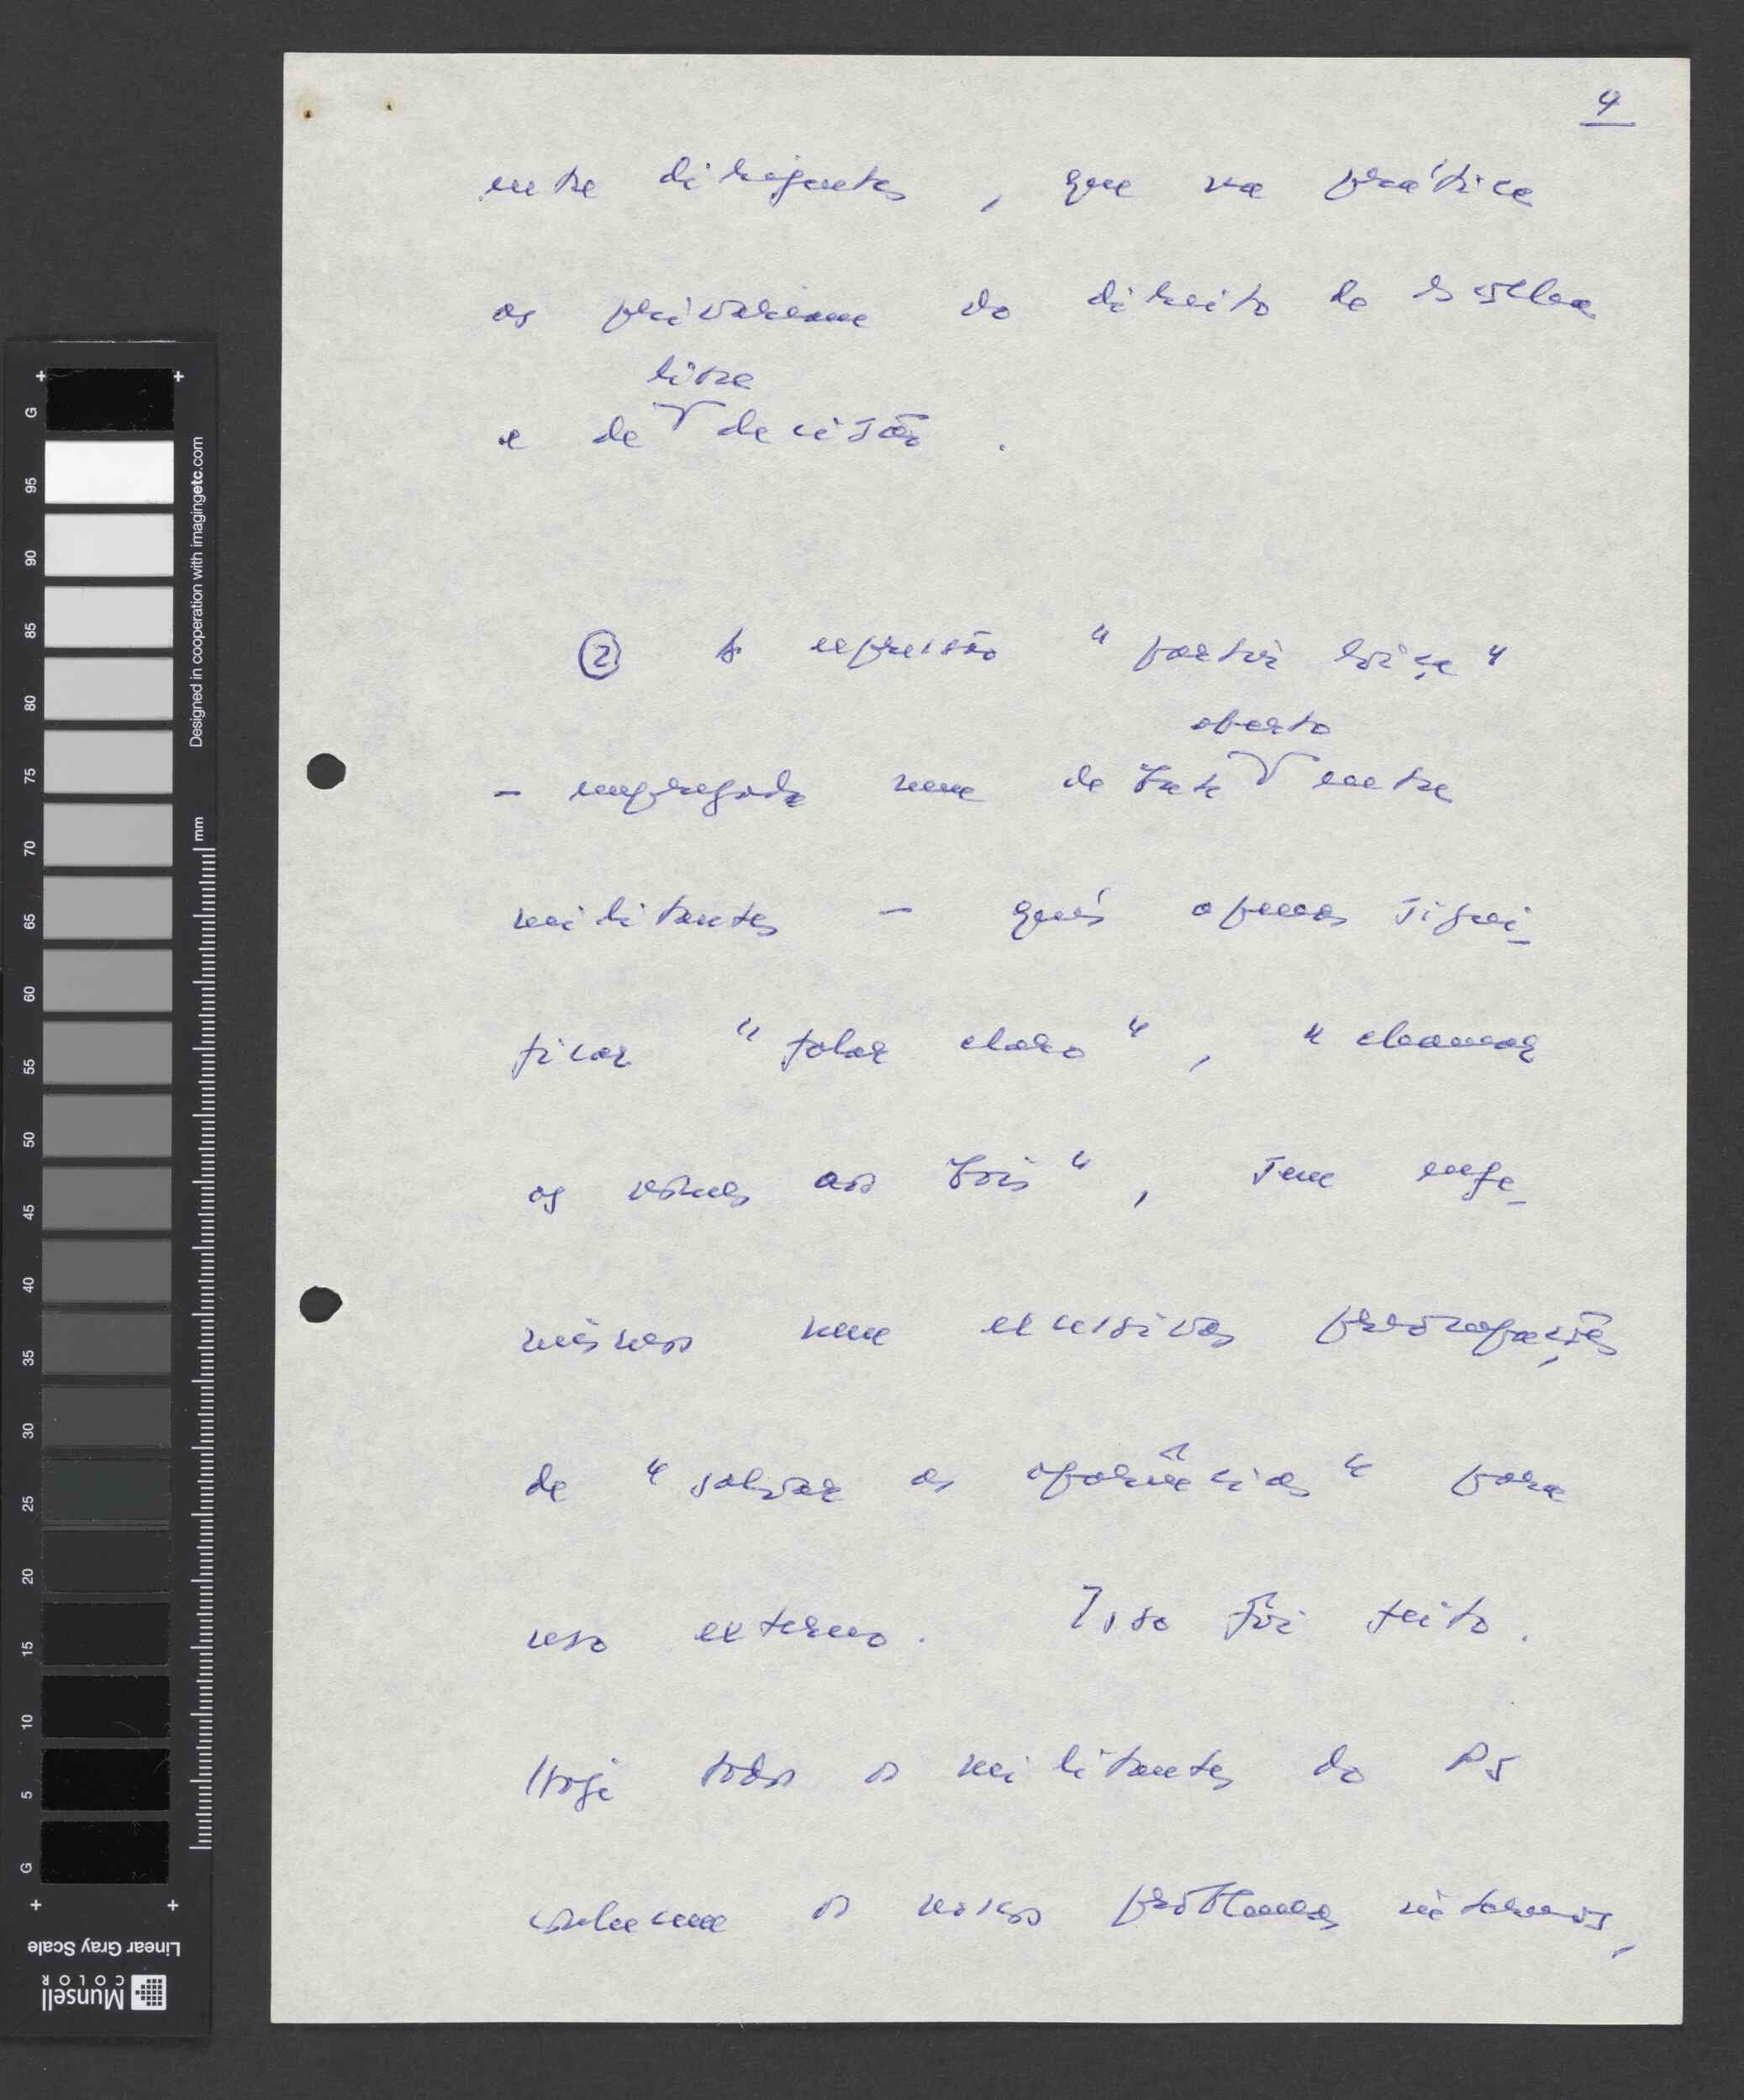 4
entre dirigentes, que na prática
os privariam do direito de escolha
livre
e de decisão.
② A expressão "partir loiça"
aberto
- empregada num debate entre
militantes - quis apenas signi-
ficar "falar claro", "chamar
os nomes aos bois", sem enge-
nuismos nem excessivas preocupações
de "salvar as aparências" para
uso externo. Isso foi feito.
Hoje todos os militantes do PS
conhecem os nossos problemas internos,
G
95
90
85
80
75
70
65
60
55
50
45
40
35
30
25
20
15
10
5
G
mm
Designed in cooperation with imagingetc.com
Linear Gray Scale
Munsell
COLOR